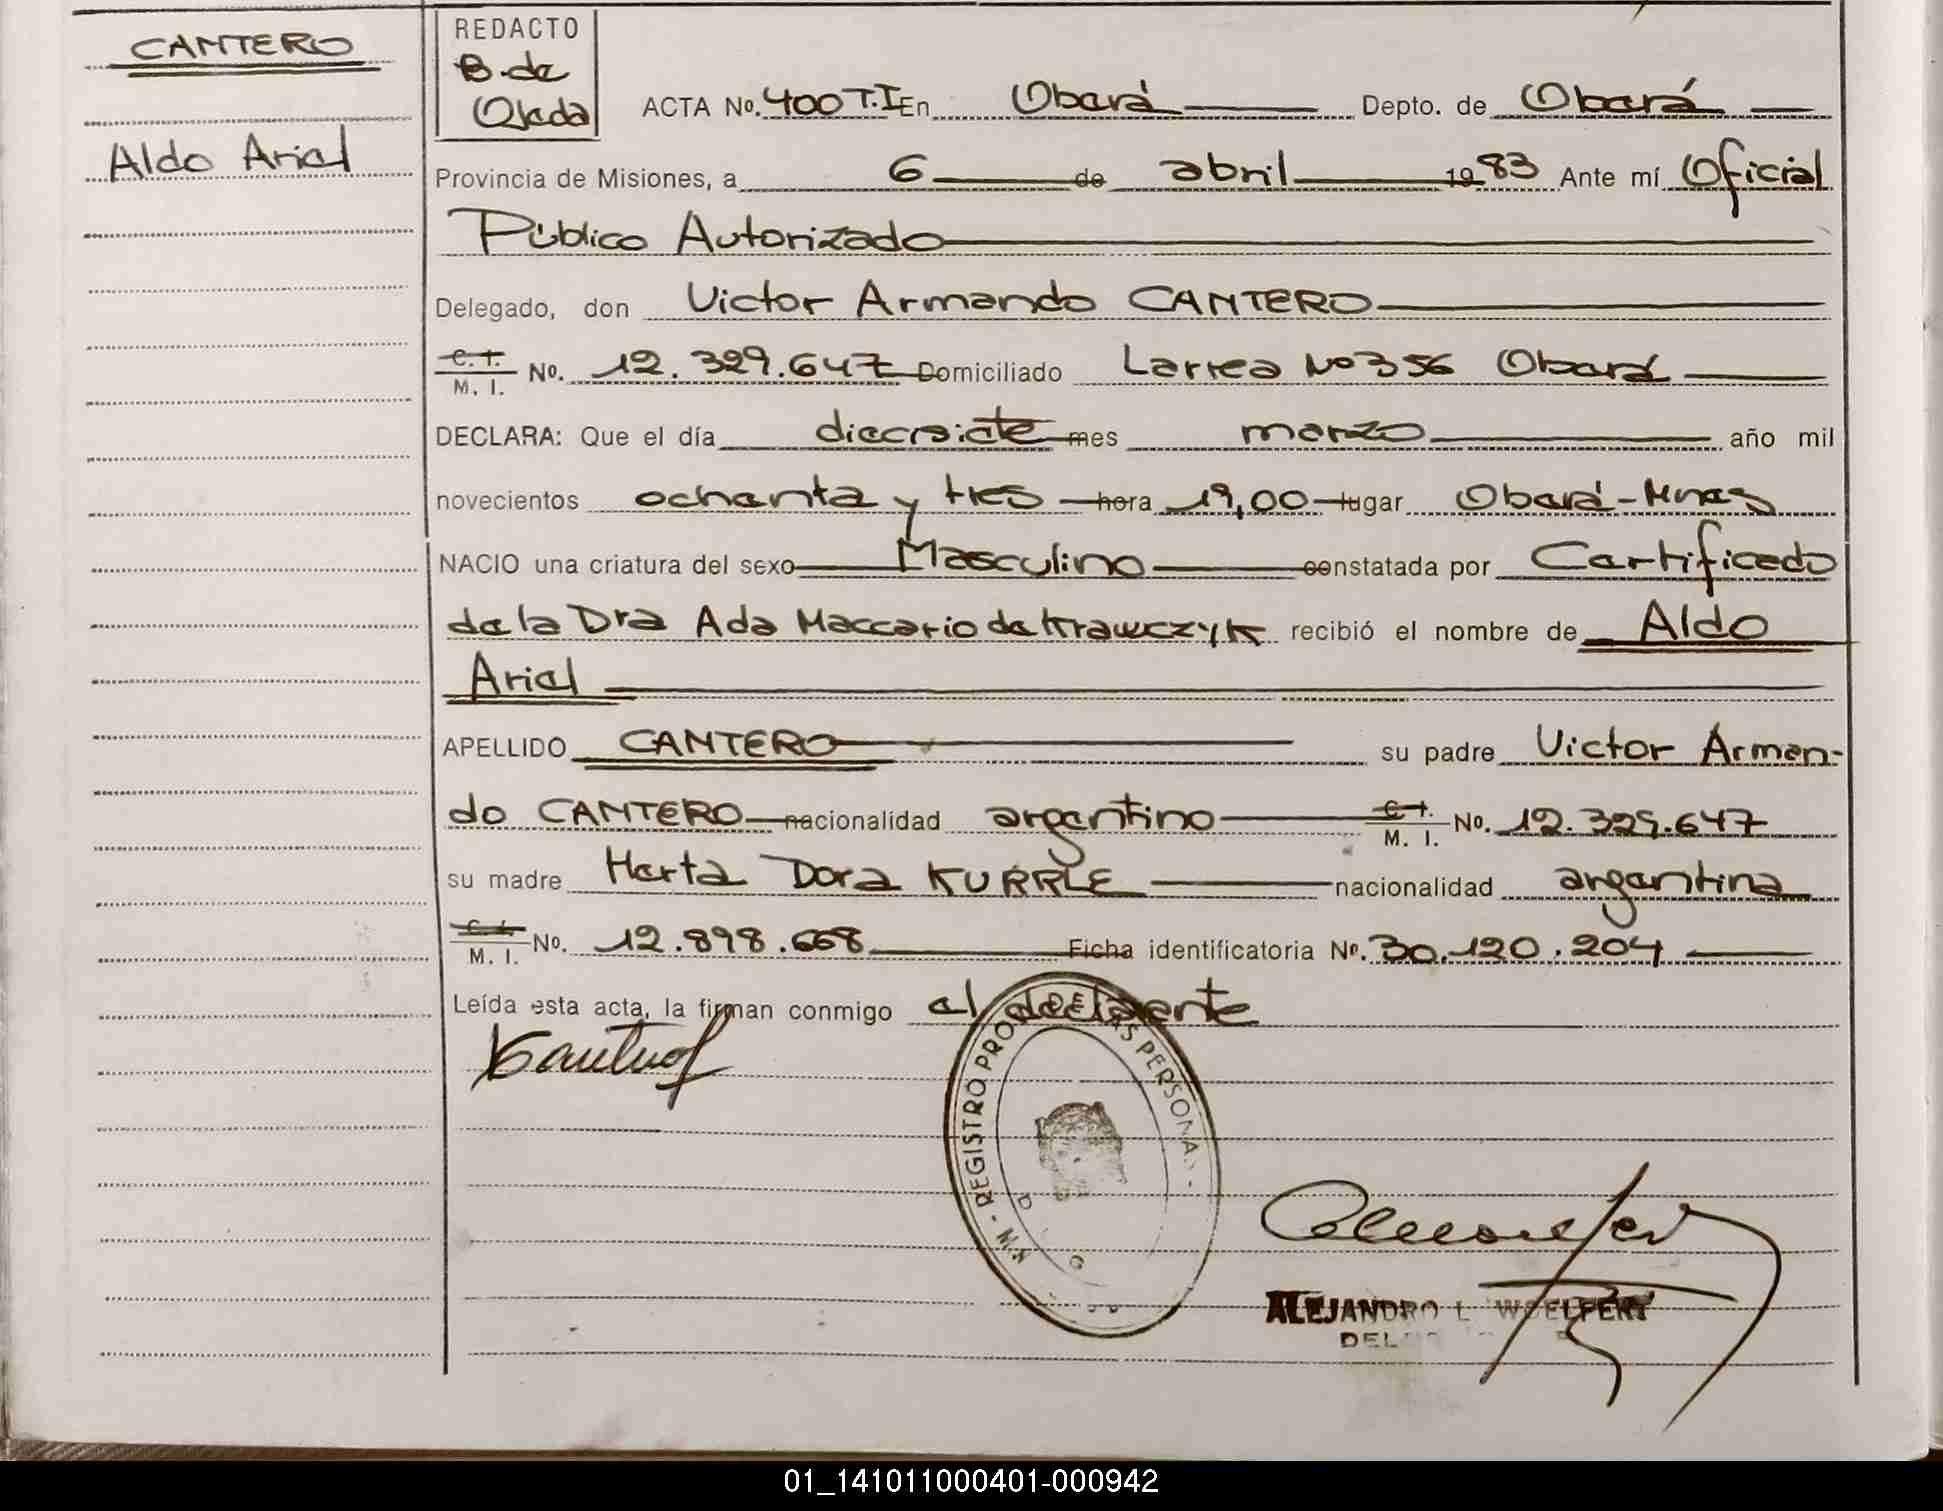 CANTERO
Aldo Ariel
REDACTO
B. de
Ojeda
ACTA No. 400 T.I En Oberá Depto. de Oberá
Provincia de Misiones, a 6 de abril 1983 Ante mí Oficial
Público Autorizado
Delegado, don Victor Armando CANTERO
C. I.
M. I. No. 12.329.647 Domiciliado Larrea Nº 356 Oberá
DECLARA: Que el día diecisiete mes marzo año mil
novecientos ochenta y tres hora 19,00 lugar Oberá-Mnes
NACIO una criatura del sexo Masculino constatada por Certificado
de la Dra Ada Maccario de Krawczyk recibió el nombre de Aldo
Ariel
APELLIDO CANTERO su padre Victor Arman-
do CANTERO nacionalidad argentino C. I.
M. I. No. 12.329.647
su madre Herta Dora KURRLE nacionalidad argentina
C. I.
M. I. No. 12.898.668 Ficha identificatoria Nº. 30.120.204
Leída esta acta, la firman conmigo el declarente
REGISTRO PRO DE LAS PERSONA
ALEJANDRO L. WOELFERT
DEL
01_141011000401-000942